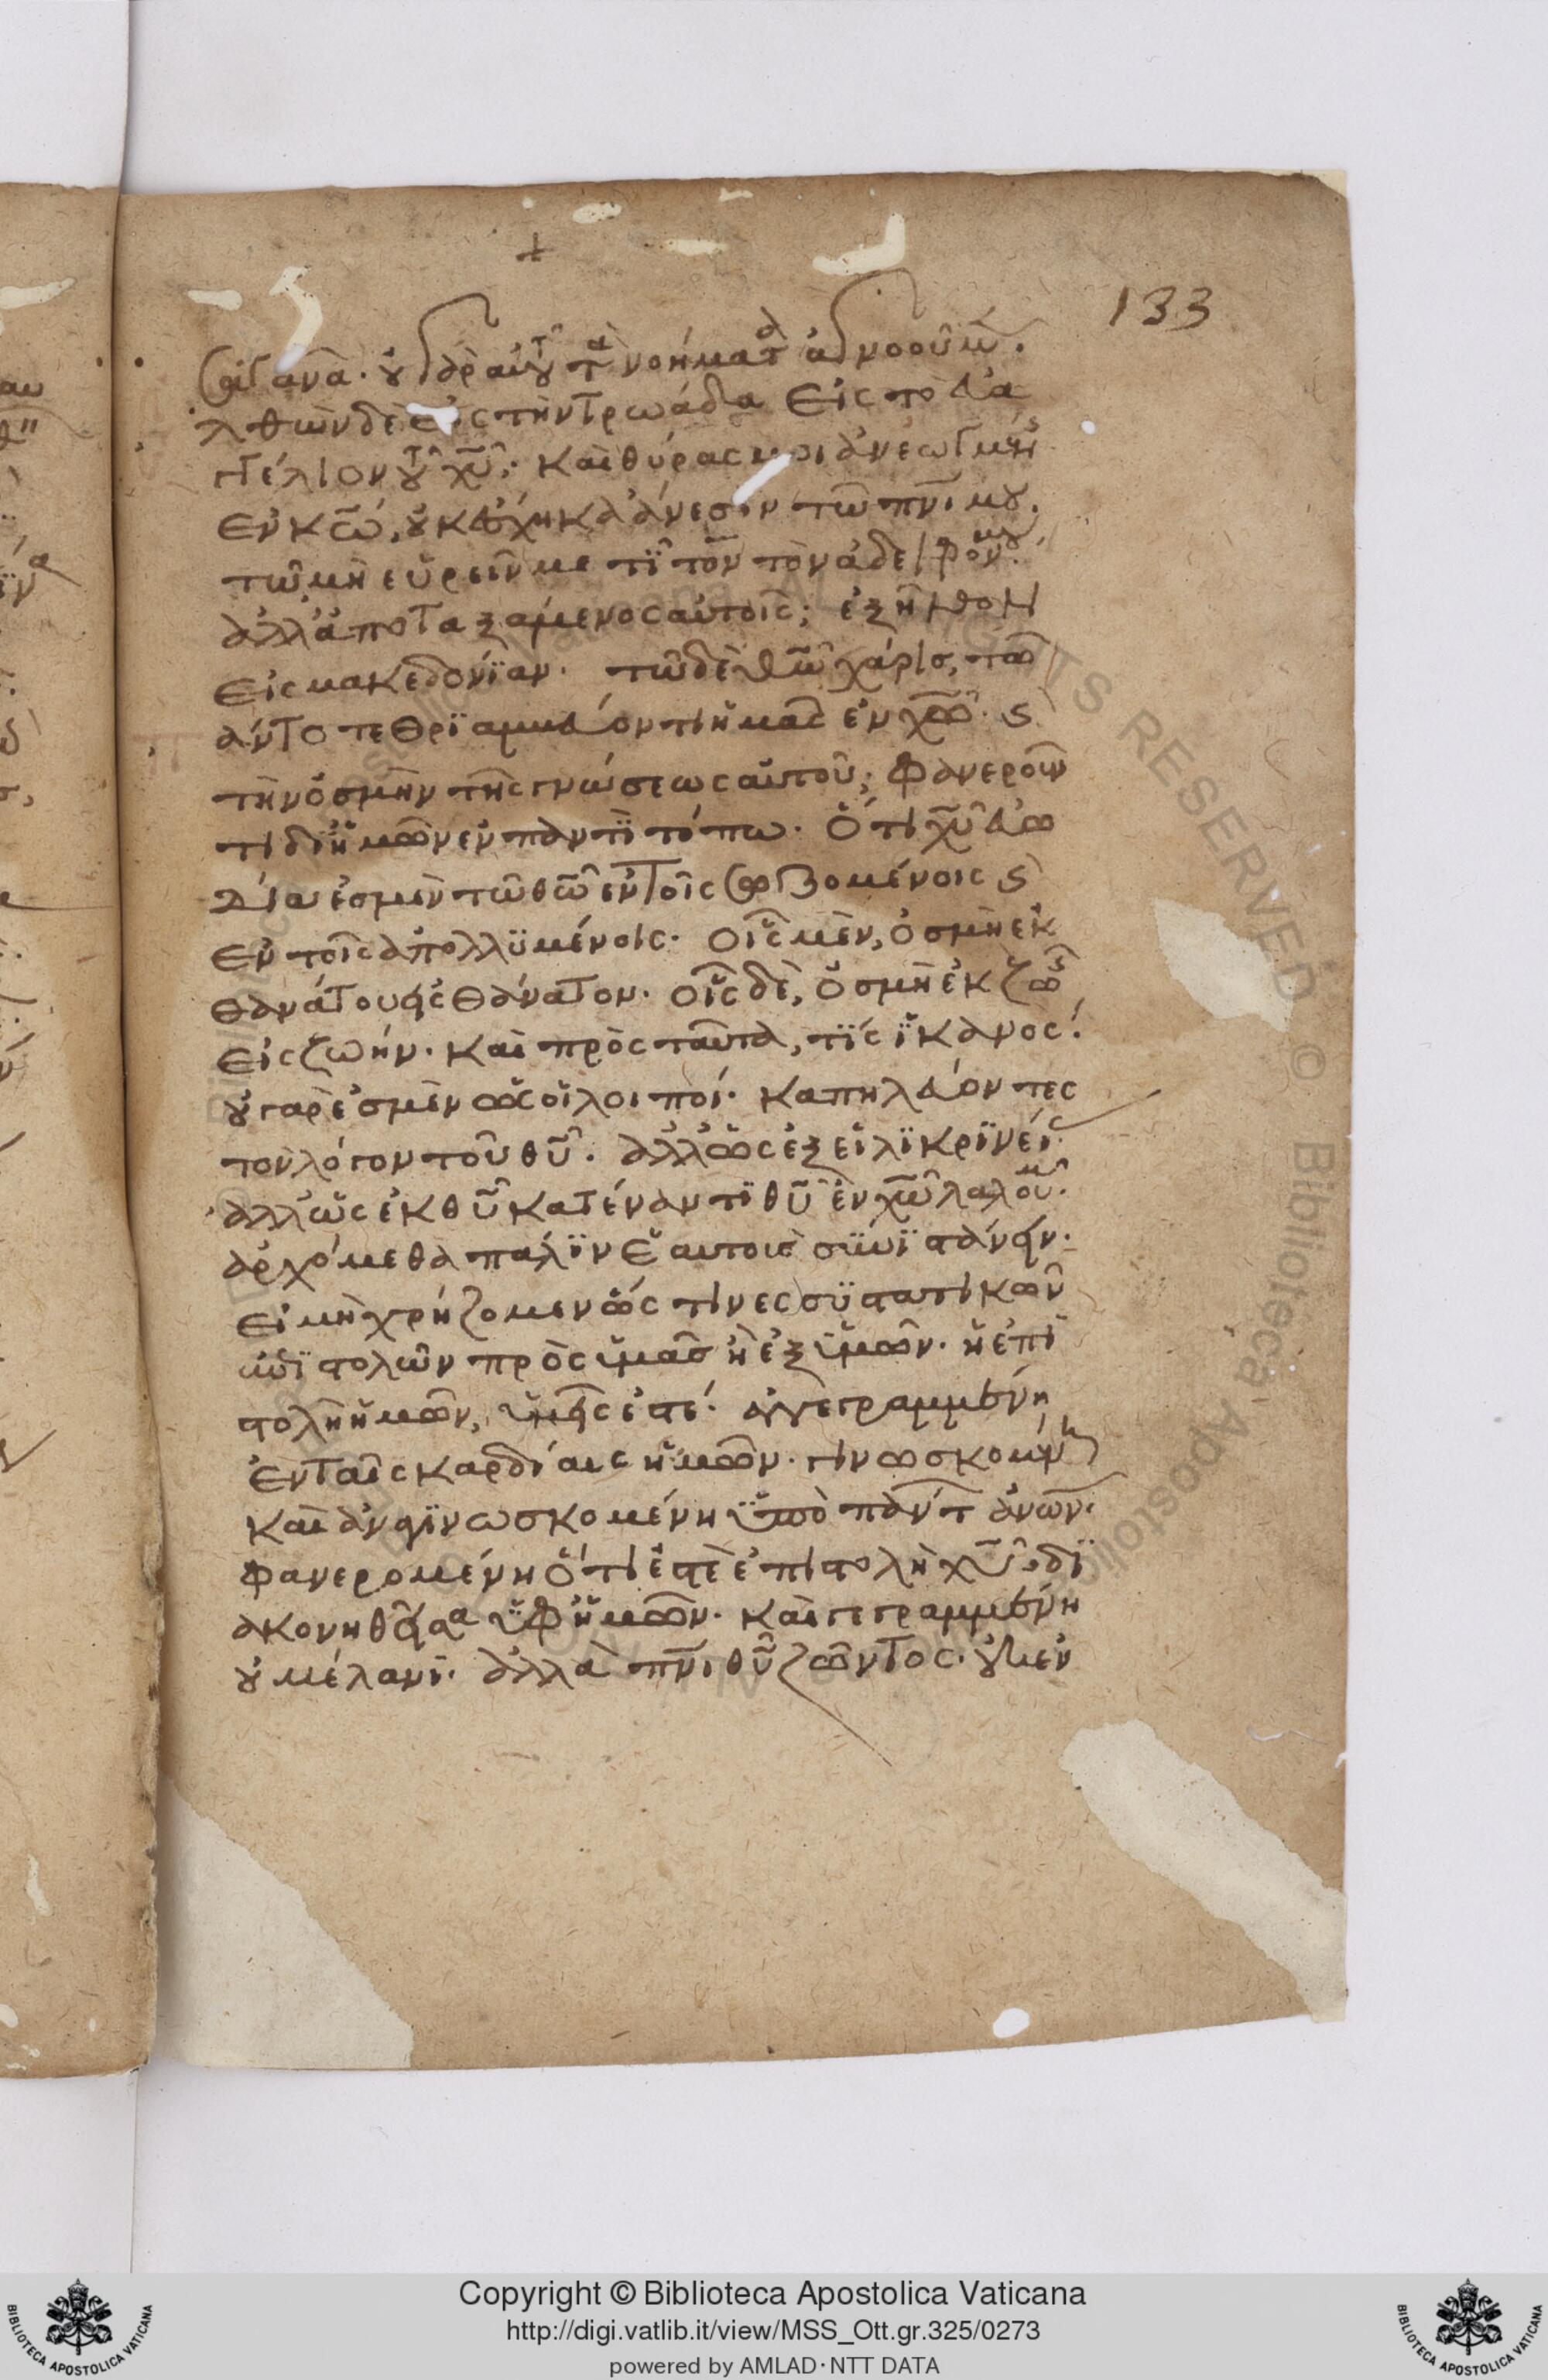 133
σατανᾶ. οὐ γὰρ αὐτοῦ τὰ νοήματα ἀγνοοῦμεν.
ἐλθὼν δὲ εἰς τὴν τρωάδα εἰς τὸ εὐα
γγέλιον τοῦ χῡ· καὶ θύρας μοι ἀνεωγμένης
ἐν κω̄, οὐκ ἔσχηκα ἄνεσιν τῶ πνι μου.
τῶ μὴ εὑρεῖν με τίτον τὸν ἀδελφόν μου.
ἀλλὰ ἀποταξάμενος αὐτοῖς; ἐξῆλθον
εἰς μακεδονίαν. τῶ δὲ θω̄ χάρις, τῶ
πάντοτε θριαμβεύοντι ἡμᾶς ἐν χω̄. καὶ
τὴν ὀσμὴν τῆς γνώσεως αὐτοῦ; φανεροῦν
τι δι ἡμῶν ἐν παντὶ τόπω. ὅτι χῡ εὐω
δία ἐσμὲν τῶ θω̄ ἐν τοῖς σωζομένοις καὶ
ἐν τοῖς ἀπολλυμένοις. οἷς μὲν, ὀσμὴ ἐκ
θανάτου εἰς θάνατον. οἷς δὲ, ὀσμὴ ἐκ ζωῆς
εἰς ζωήν. καὶ πρὸς ταῦτα, τίς ἱκανος;
οὐ γαρ ἐσμὲν ὡς οἱ λοιποί. καπηλεύοντες
τὸν λόγον τοῦ θῡ. ἀλλ ὡς ἐξ εἰλικρινεί
ἀλλ ὡς ἐκ θῡ κατέναντι θῡ ἐν χω̄ λαλοῦμεν.
ἀρχόμεθα πάλιν ἑαυτοὺς συνιστάνειν.
εἰ μὴ χρήζομεν ὥς τινες συστατικῶν
ἐπιστολῶν πρὸς ὑμᾶς ἢ ἐξ ὑμῶν. ἡ ἐπι
στολὴ ἡμῶν, ὑμεῖς ἐστέ. ἐγγεγραμμένη
ἐν ταῖς καρδίαις ἡμῶν. γινωσκομένη
καὶ ἀναγινωσκομένη ὑπὸ πάντων ἀνων̄.
φανερομένη ὅτι ἐστὲ ἐπιστολὴ χῡ, δι
ακονηθεῖσα ὑφ ἡμῶν. καὶ γεγραμμένη
οὐ μέλανι. ἀλλὰ πνι θῡ ζῶντος. οὐκ ἐν
Copyright © Biblioteca Apostolica Vaticana
http://digi.vatlib.it/view/MSS_Ott.gr.325/0273
powered by AMLAD·NTT DATA